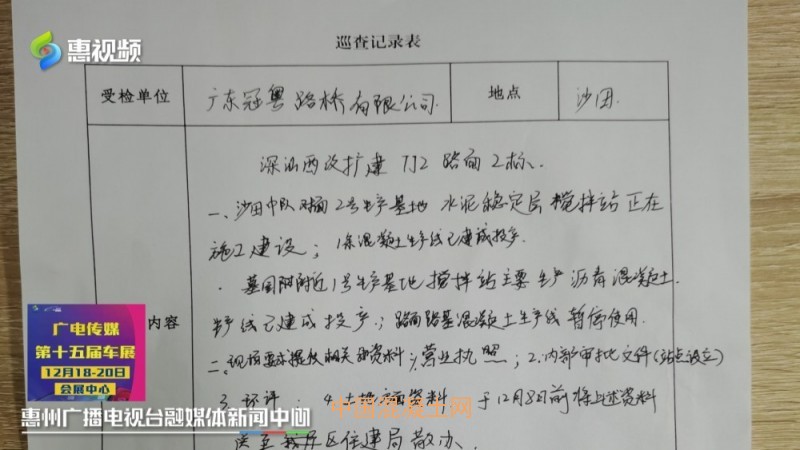 惠视频
巡查记录表
受检单位
广东冠粤路桥有限公司
地点
沙田
深汕西改扩建 TJ2 路面2标、
一、沙田中队对面2号生产基地 水泥稳定层 搅拌站 正在
施工建设；1条混凝土生产线已建成投产.
墓园附近1号生产基地 搅拌站主要生产沥青混凝土
生产线已建成投产；路面路基混凝土生产线暂停使用.
内容
二、现场要求提供相关资料 1、营业执照；2.内部审批文件(站点设立)
3、环评； 4. 资料 于12月8日前将上述资料
送至 区住建局散办、
广电传媒
第十五届车展
12月18-20日
会展中心
中国混凝土网
惠州广播电视台融媒体新闻中心